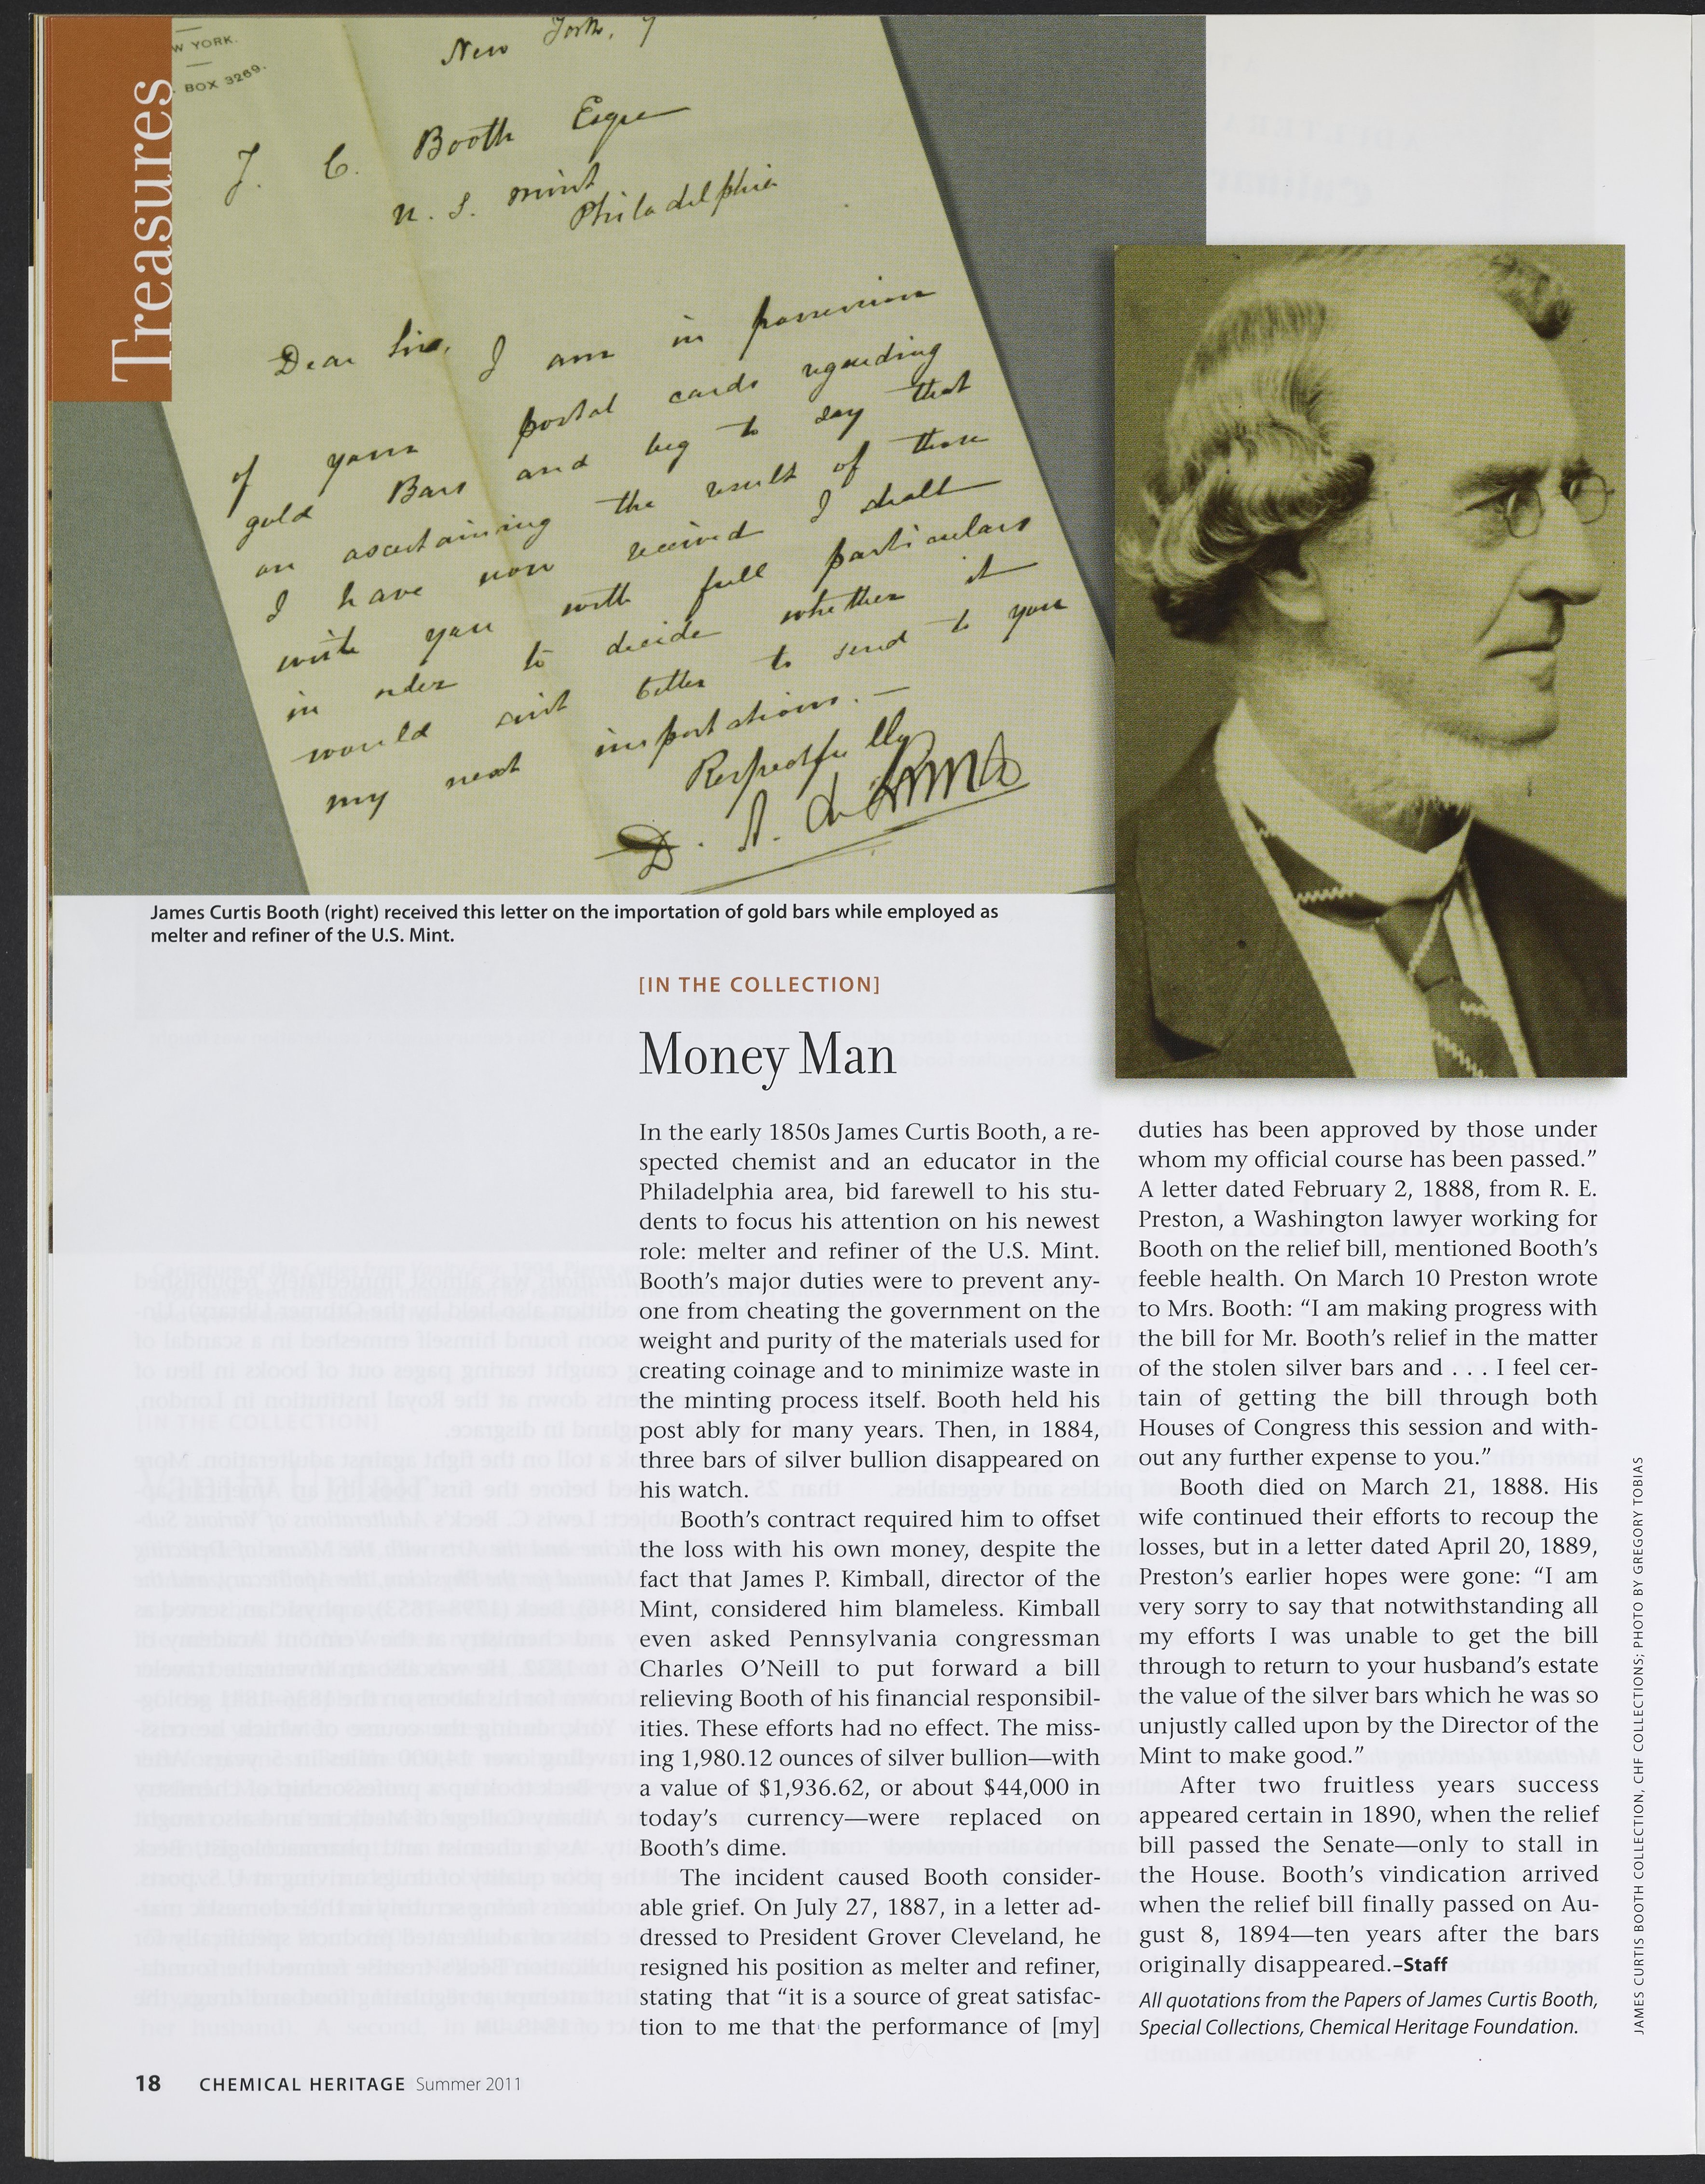 Treasures
W YORK.
BOX 3269.
New York,
J. C. Booth Esqre
U. S. Mint
Philadelphia
Dear Sir, I am in possession
of yours postal cards regarding
gold Bars and beg to say that
on ascertaining the result of those
I have now received I shall
write you with full particulars
in order to decide whether it
would suit better to send to you
my next importations. —
Respectfully
James Curtis Booth (right) received this letter on the importation of gold bars while employed as
melter and refiner of the U.S. Mint.
[IN THE COLLECTION]
Money Man
In the early 1850s James Curtis Booth, a re-
spected chemist and an educator in the
Philadelphia area, bid farewell to his stu-
dents to focus his attention on his newest
role: melter and refiner of the U.S. Mint.
Booth's major duties were to prevent any-
one from cheating the government on the
weight and purity of the materials used for
creating coinage and to minimize waste in
the minting process itself. Booth held his
post ably for many years. Then, in 1884,
three bars of silver bullion disappeared on
his watch.
Booth's contract required him to offset
the loss with his own money, despite the
fact that James P. Kimball, director of the
Mint, considered him blameless. Kimball
even asked Pennsylvania congressman
Charles O'Neill to put forward a bill
relieving Booth of his financial responsibil-
ities. These efforts had no effect. The miss-
ing 1,980.12 ounces of silver bullion—with
a value of $1,936.62, or about $44,000 in
today's currency—were replaced on
Booth's dime.
The incident caused Booth consider-
able grief. On July 27, 1887, in a letter ad-
dressed to President Grover Cleveland, he
resigned his position as melter and refiner,
stating that "it is a source of great satisfac-
tion to me that the performance of [my]
duties has been approved by those under
whom my official course has been passed."
A letter dated February 2, 1888, from R. E.
Preston, a Washington lawyer working for
Booth on the relief bill, mentioned Booth's
feeble health. On March 10 Preston wrote
to Mrs. Booth: "I am making progress with
the bill for Mr. Booth's relief in the matter
of the stolen silver bars and . . . I feel cer-
tain of getting the bill through both
Houses of Congress this session and with-
out any further expense to you."
Booth died on March 21, 1888. His
wife continued their efforts to recoup the
losses, but in a letter dated April 20, 1889,
Preston's earlier hopes were gone: "I am
very sorry to say that notwithstanding all
my efforts I was unable to get the bill
through to return to your husband's estate
the value of the silver bars which he was so
unjustly called upon by the Director of the
Mint to make good."
After two fruitless years success
appeared certain in 1890, when the relief
bill passed the Senate—only to stall in
the House. Booth's vindication arrived
when the relief bill finally passed on Au-
gust 8, 1894—ten years after the bars
originally disappeared.–Staff
All quotations from the Papers of James Curtis Booth,
Special Collections, Chemical Heritage Foundation.
JAMES CURTIS BOOTH COLLECTION, CHF COLLECTIONS; PHOTO BY GREGORY TOBIAS
18 CHEMICAL HERITAGE Summer 2011